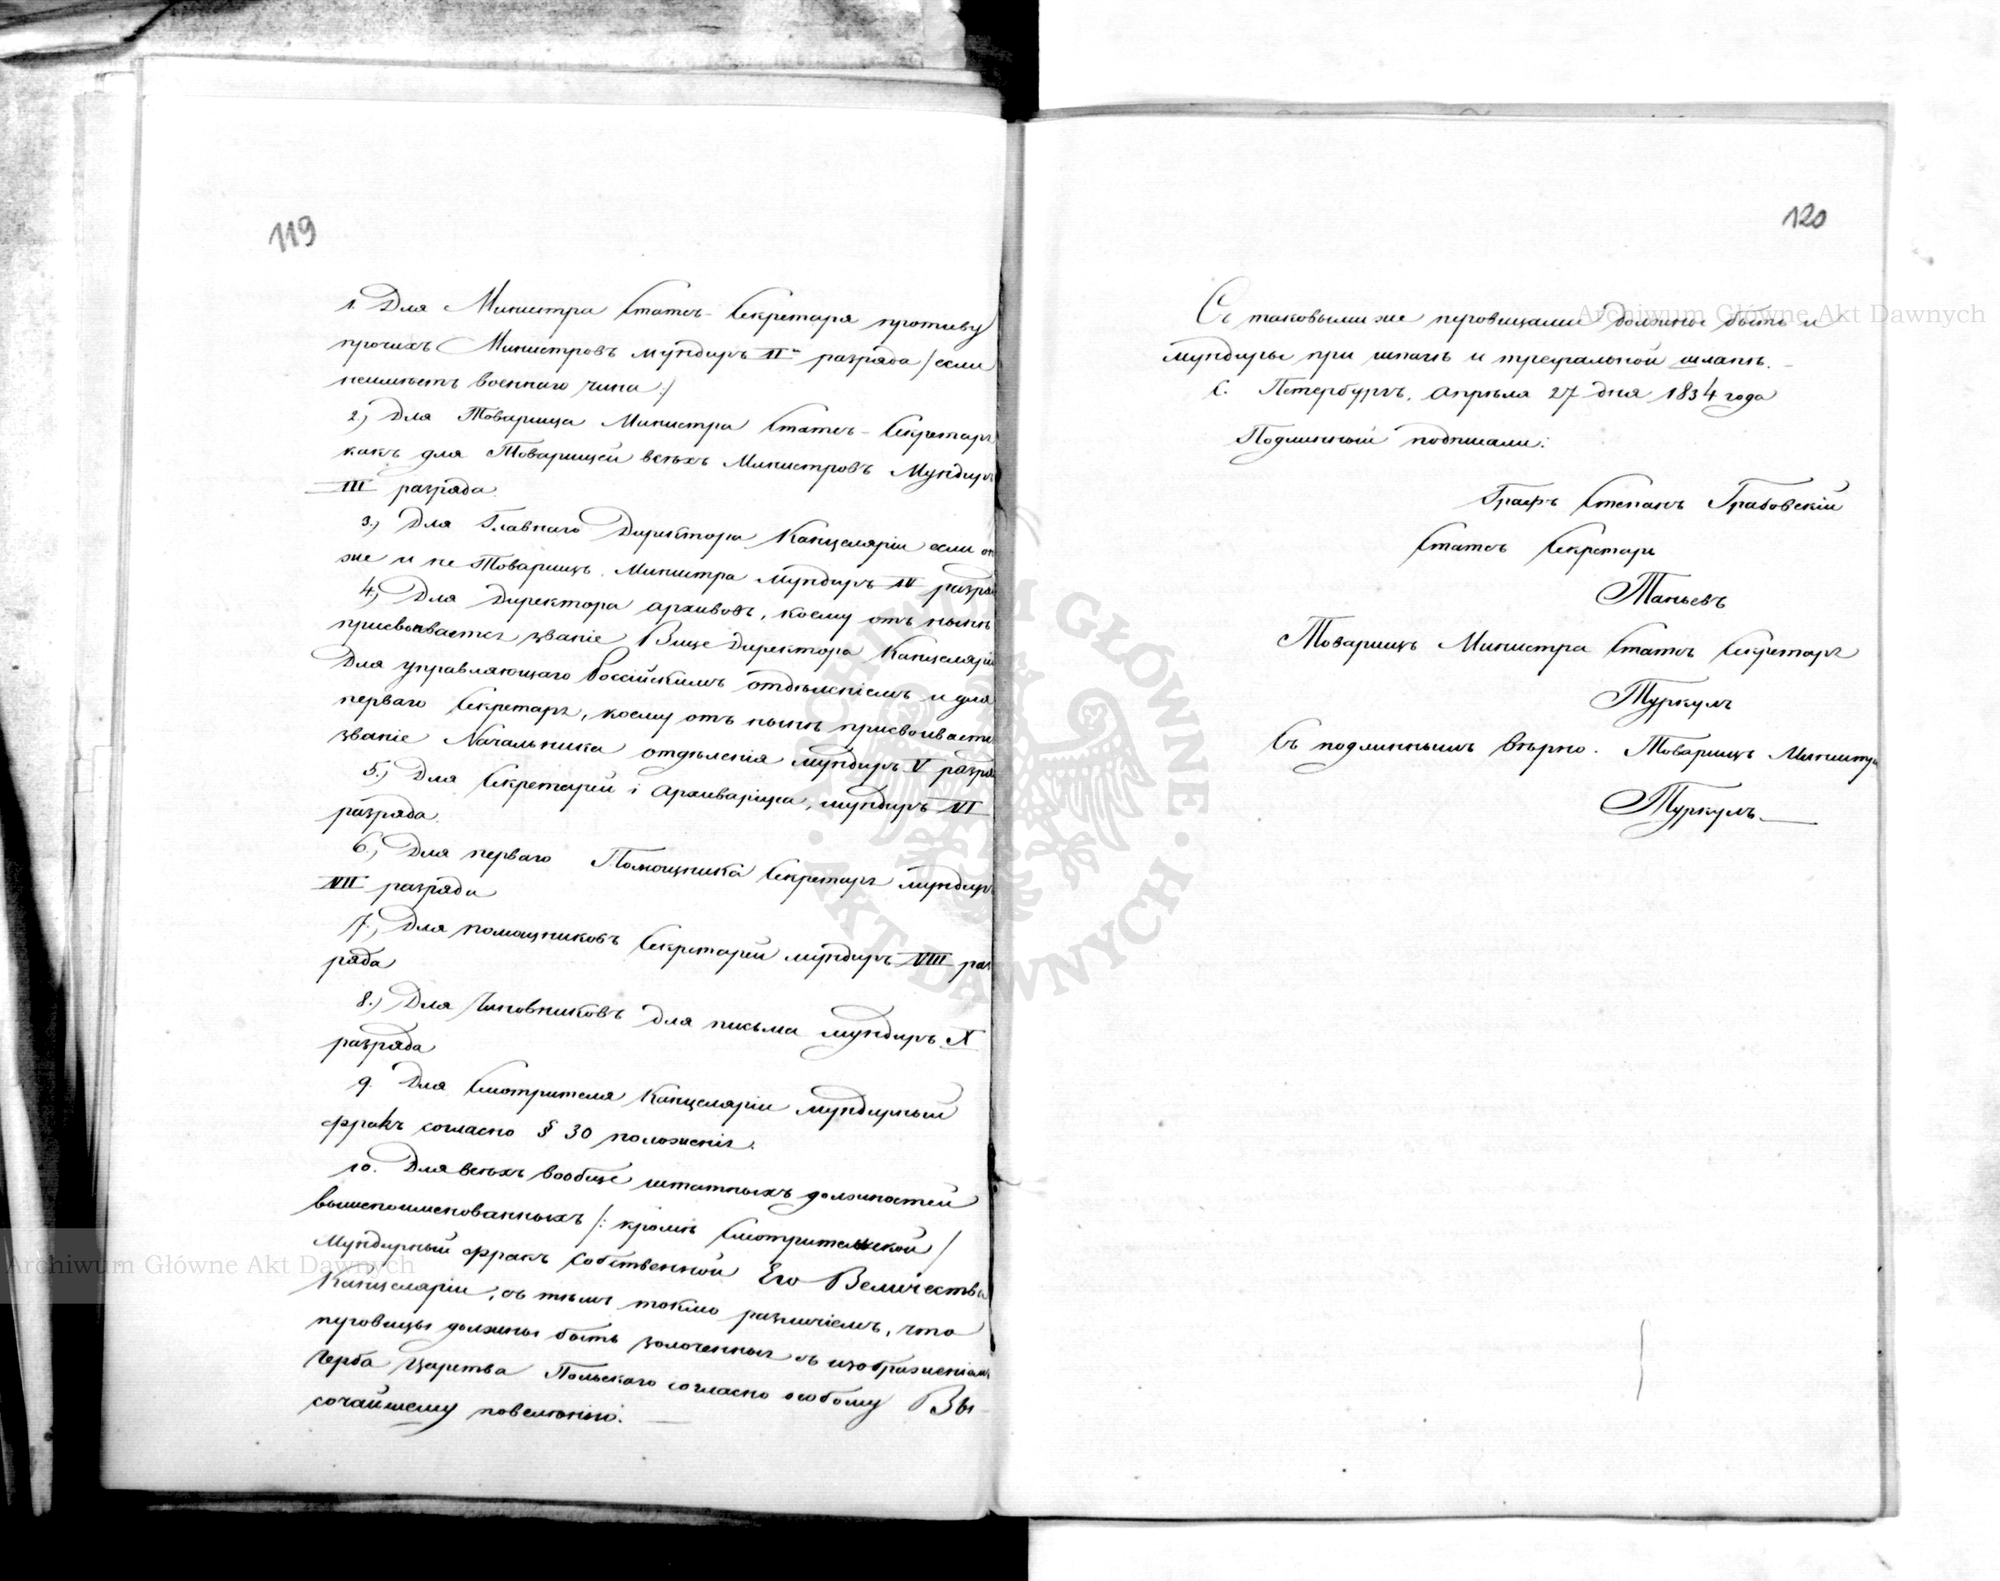 119
1. Для Министра Статсъ-Секретаря противу
прочихъ Министровъ мундиръ II разряда /если
неимѣетъ военнаго чина:/
2) Для Товарища Министра Статсъ-Секретаря
какъ для Товарищей всѣхъ Министровъ Мундиръ
III разряда.
3.) Для Главнаго Директора Канцеляріи если он
же и не Товарищъ Министра мундиръ IV разря
4.) Для Директора Архивовъ, коему отъ нынѣ
присвоивается званіе Вице Директора Канцеляріи
Для управляющаго Россійскимъ отдѣленіемъ и для
перваго Секретаря, коему отъ нынѣ присвоивается
званіе Начальника отдѣленія мундиръ V разря
5.) Для Секретарей і Архиваріуса, мундиръ VI
разряда.
6.) Для перваго Помощника Секретаря мундиръ
VII разряда
7.) Для помощниковъ Секретарей мундиръ VIII раз
ряда
8.) Для Чиновниковъ для письма мундиръ X
разряда
9. Для Смотрителя Канцеляріи мундирный
фракъ согласно § 30 положенія.
10. Для всѣхъ вообще штатныхъ должностей
вышепоименованныхъ /: кромѣ Смотрительской /
Мундирный фракъ Собственной Его Величества
Канцеляріи, съ тѣмъ токмо различіемъ, что
пуговицы должны быть золоченныя съ изображеніемъ
Герба Царства Польскаго согласно особому Вы-
сочайшему повелѣнію.
120
Съ таковыми же пуговицами должны быть и
мундиры при шпагѣ и треугальной шляпѣ.
С. Петербургъ, Апрѣля 27 дня 1834 года
Подлинный подписали:
Графъ Степанъ Грабовскій
Статсъ Секретарь
Танѣевъ
Товарищъ Министра Статсъ Секретаря
Туркулъ
Съ подлиннымъ вѣрно. Товарищъ Министра
Туркулъ
Archiwum Główne Akt Dawnych
Archiwum Główne Akt Dawnych
ARCHIWUM GŁÓWNE · AKT DAWNYCH ·